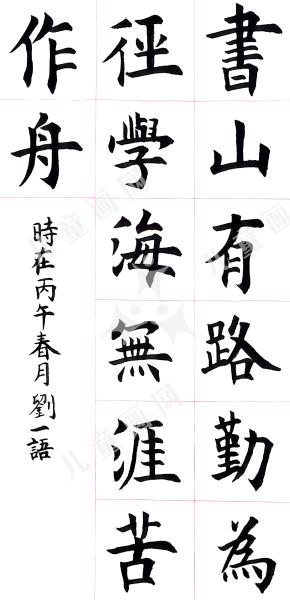 書山有路勤為
徑學海無涯苦
作舟
時在丙午春月劉一語
儿童画网